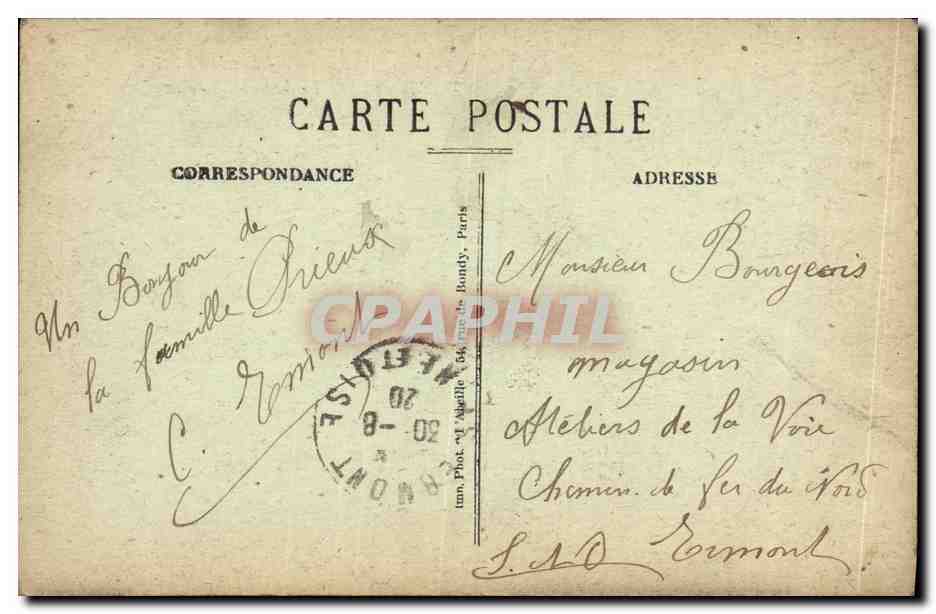 CARTE POSTALE
CORRESPONDANCE
ADRESSE
Un Bonjour de
la famille Prieux
C. Ermont
Monsieur Bourgeois
magasin
Ateliers de la Voie
Chemin de fer du Nord
S. &O Ermont
ERMONT
NE ET OISE
30 -8
20
Imp. Phot. "L'Abeille", 54, rue de Bondy, Paris
CPAPHIL